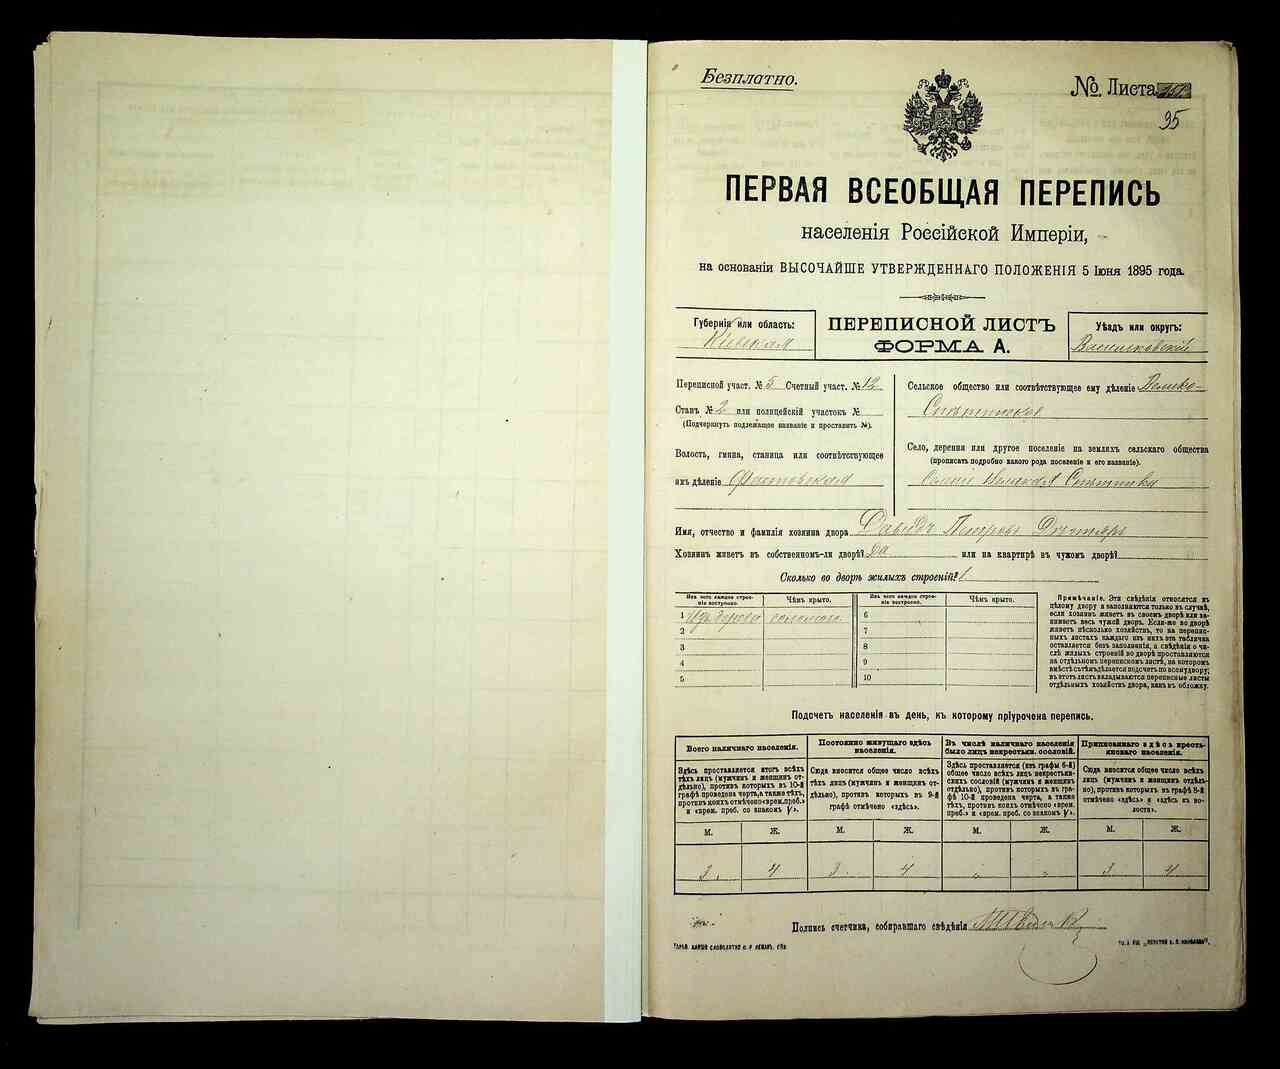 Безплатно.
№ Листа
95
ПЕРВАЯ ВСЕОБЩАЯ ПЕРЕПИСЬ
населенія Россійской Имперіи,
на основаніи ВЫСОЧАЙШЕ УТВЕРЖДЕННАГО ПОЛОЖЕНІЯ 5 Іюня 1895 года.
Губернія или область:
Кіевская
ПЕРЕПИСНОЙ ЛИСТЪ
ФОРМА А.
Уѣздъ или округъ:
Васильковскій
Переписной участ. № 5 Счетный участ. № 12
Станъ № 2 или полицейскій участокъ №
(Подчеркнуть подлежащее названіе и проставить №).
Волость, гмина, станица или соотвѣтствующее
имъ дѣленіе Фастовская
Сельское общество или соотвѣтствующее ему дѣленіе Велико-
Село, деревня или другое поселеніе на земляхъ сельскаго общества
(прописать подробно какого рода поселеніе и его названіе).
Великая
Имя, отчество и фамилія хозяина двора Давидъ Петровъ
Хозяинъ живетъ въ собственномъ-ли дворѣ? Да или на квартирѣ въ чужомъ дворѣ?
Сколько во дворѣ жилыхъ строеній? 1
Изъ чего каждое строеніе построено.
Чѣмъ крыто.
Изъ чего каждое строеніе построено.
Чѣмъ крыто.
1 Изъ дерева соломою
2
3
4
5
6
7
8
9
10
Примѣчаніе. Эти свѣдѣнія относятся къ
цѣлому двору и заполняются только въ случаѣ,
если хозяинъ живетъ въ своемъ дворѣ или за-
нимаетъ весь чужой дворъ. Если-же во дворѣ
живетъ нѣсколько хозяйствъ, то на перепис-
ныхъ листахъ каждаго изъ нихъ эта табличка
оставляется безъ заполненія, а свѣдѣнія о чи-
слѣ жилыхъ строеній во дворѣ проставляются
на отдѣльномъ переписномъ листѣ, на которомъ
вмѣстѣ съ тѣмъ дѣлается подсчетъ по всему двору;
въ этотъ листъ вкладываются переписные листы
отдѣльныхъ хозяйствъ двора, какъ въ обложку.
Подсчетъ населенія въ день, къ которому пріурочена перепись.
Всего наличнаго населенія.
Здѣсь проставляется итогъ всѣхъ
тѣхъ лицъ (мужчинъ и женщинъ от-
дѣльно), противъ которыхъ въ 10-й
графѣ проведена черта, а также тѣхъ,
противъ коихъ отмѣчено «врем. преб.»
и «врем. преб. со знакомъ V».
Постоянно живущаго здѣсь
населенія.
Сюда вносится общее число всѣхъ
тѣхъ лицъ (мужчинъ и женщинъ от-
дѣльно), противъ которыхъ въ 9-й
графѣ отмѣчено «здѣсь».
Въ числѣ наличнаго населенія
было лицъ некрестьян. сословій.
Здѣсь проставляется (изъ графы 6-й)
общее число всѣхъ лицъ некрестьян-
скихъ сословій (мужчинъ и женщинъ
отдѣльно), противъ которыхъ въ гра-
фѣ 10-й проведена черта, а также
тѣхъ, противъ коихъ отмѣчено «врем.
преб.» и «врем. преб. со знакомъ V».
Приписаннаго здѣсь кресть-
янскаго населенія.
Сюда вносится общее число всѣхъ
лицъ (мужчинъ и женщинъ отдѣль-
но), противъ которыхъ въ графѣ 8-й
отмѣчено «здѣсь» и «здѣсь въ во-
лости».
М. Ж. М. Ж. М. Ж. М. Ж.
3. 4 3. 4 „ „ 3 4
Подпись счетчика, собиравшаго свѣдѣнія